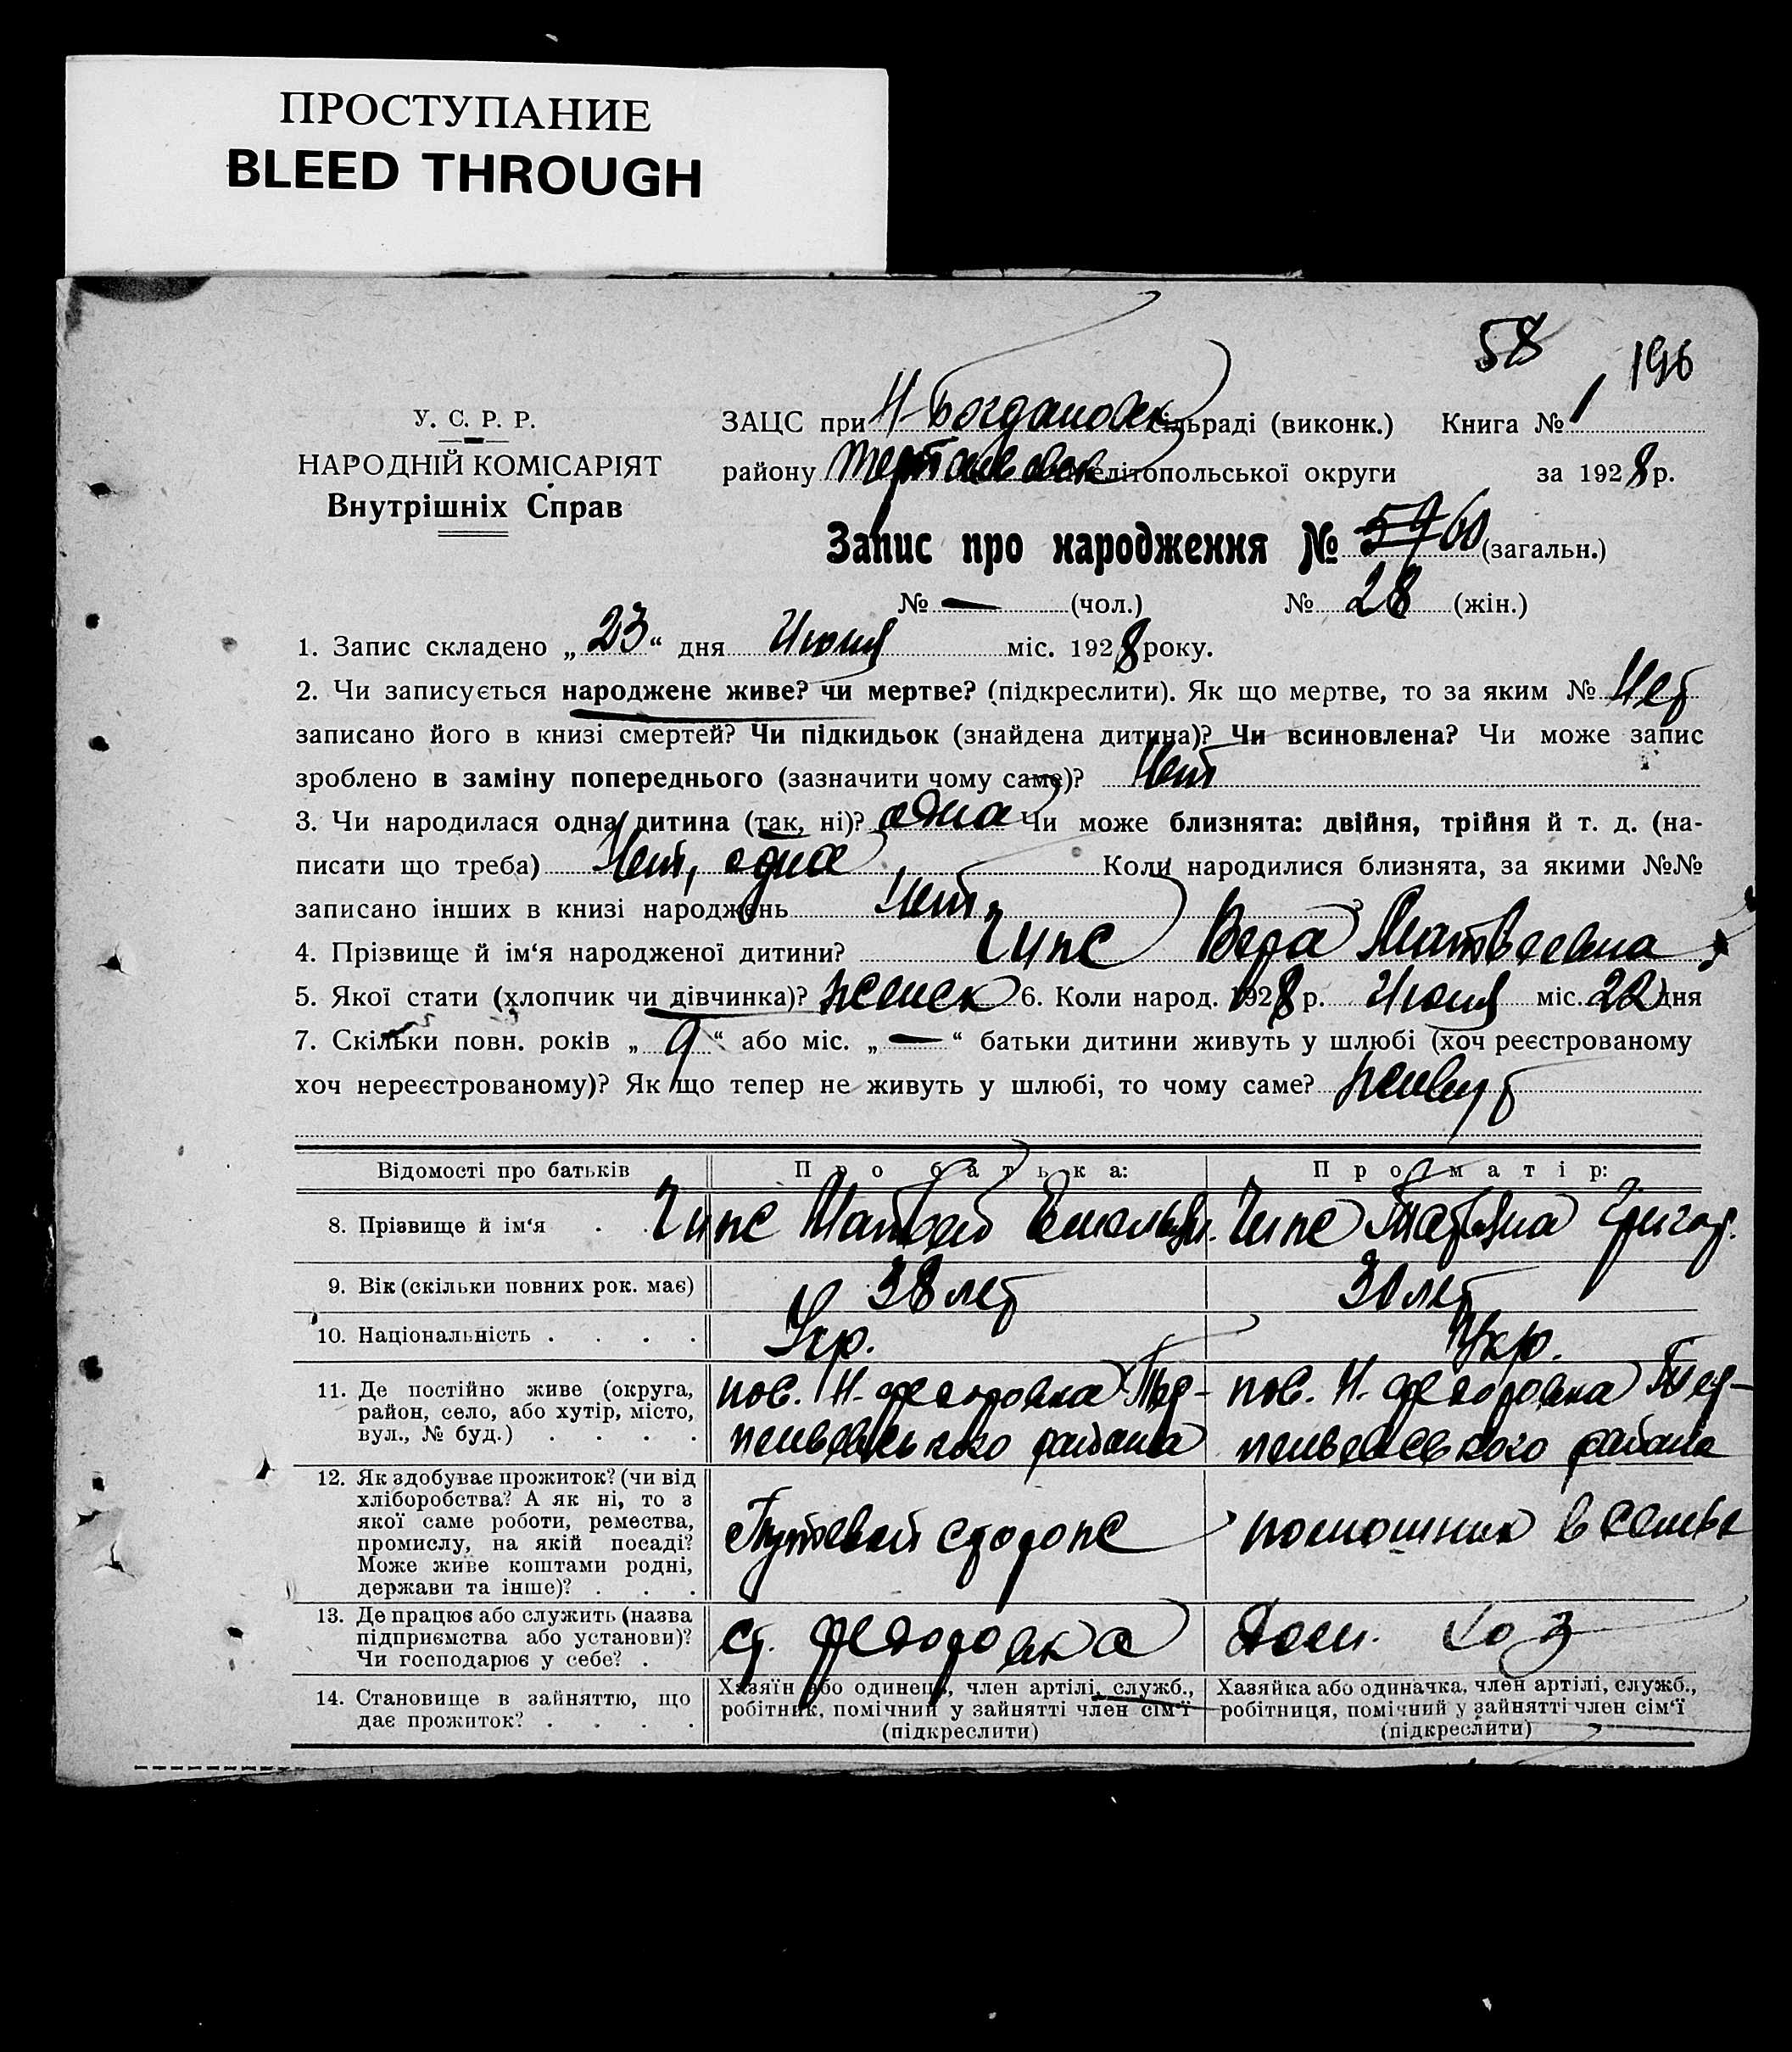 ПРОСТУПАНИЕ
BLEED THROUGH
58
196
У. С. Р. Р.
НАРОДНІЙ КОМІСАРІЯТ
Внутрішніх Справ
ЗАЦС при Н-Богдановск сільраді (виконк.) Книга № 1
району мелітопольської округи за 1928 р.
Запис про народження № 59 60 (загальн.)
№ — (чол.) № 28 (жін.)
1. Запис складено „23“ дня Июня міс. 1928 року.
2. Чи записується народжене живе? чи мертве? (підкреслити). Як що мертве, то за яким № Нет
записано його в книзі смертей? Чи підкидьок (знайдена дитина)? Чи всиновлена? Чи може запис
зроблено в заміну попереднього (зазначити чому саме)? Нет
3. Чи народилася одна дитина (так, ні)? одна Чи може близнята: двійня, трійня й т. д. (на-
писати що треба) Нет, одна Коли народилися близнята, за якими №№
записано інших в книзі народжень Нет
4. Прізвище й ім‘я народженої дитини? Чипс Вера Матвеевна
5. Якої стати (хлопчик чи дівчинка)? женск 6. Коли народ. 1928 р. Июня міс. 22 дня
7. Скільки повн. років „9“ або міс. „—“ батьки дитини живуть у шлюбі (хоч реєстрованому
хоч нереєстрованому)? Як що тепер не живуть у шлюбі, то чому саме? живут
Відомості про батьків Про батька: Про матір:
8. Прізвище й ім‘я . . Чипс Матвей Емельян. Чипс Татьяна Григор.
9. Вік (скільки повних рок. має) 38 лет 30 лет
10. Національність . . . . Укр. Укр.
11. Де постійно живе (округа,
район, село, або хутір, місто,
вул., № буд.) . . . .
пос. Н-Федоровка Тер-
пеньевского района
пос. Н-Федоровка Тер-
пеньевского района
12. Як здобуває прожиток? (чи від
хліборобства? А як ні, то з
якої саме роботи, ремества,
промислу, на якій посаді?
Може живе коштами родні,
держави та інше)? . . .
Путевой сторож
помошник в семье
13. Де працює або служить (назва
підприємства або установи)?
Чи господарює у себе? .
ст. Федоровка
Дом. хоз
14. Становище в зайняттю, що
дає прожиток? . . . .
Хазяїн або одинець, член артілі, служб.,
робітник, помічний у зайнятті член сім‘ї
(підкреслити)
Хазяйка або одиначка, член артілі, служб.,
робітниця, помічний у зайнятті член сім‘ї
(підкреслити)